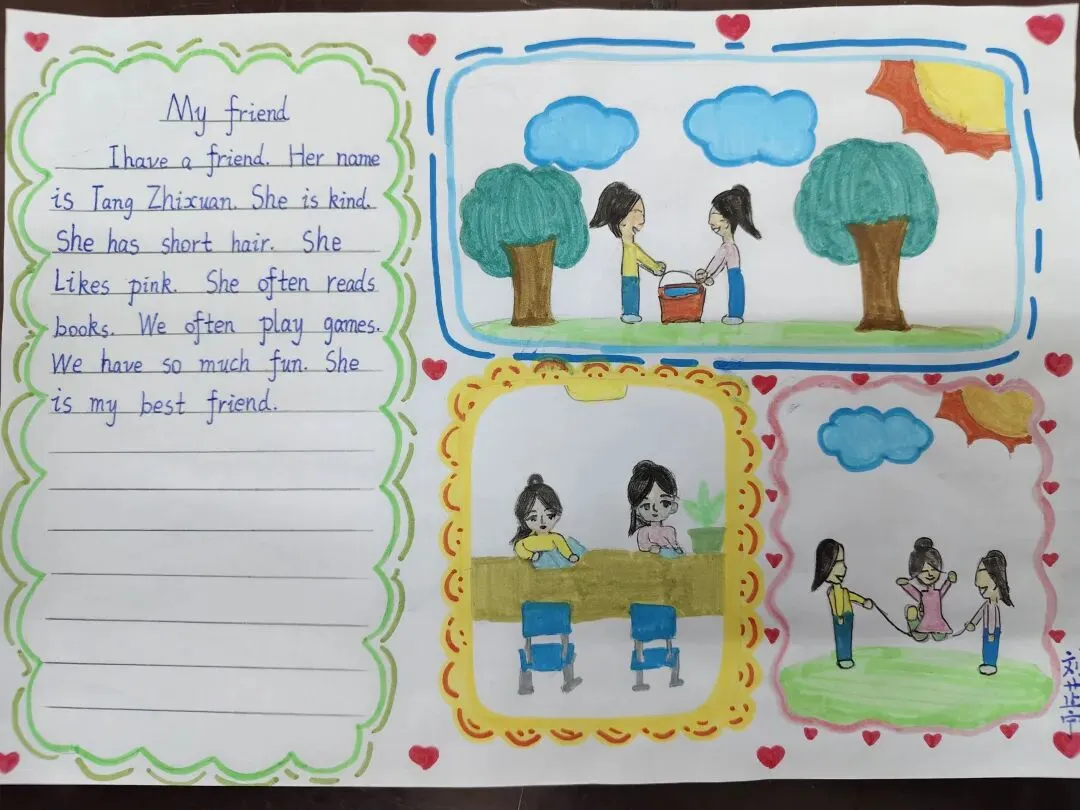 My friend
I have a friend. Her name
is Tang Zhixuan. She is kind.
She has short hair. She
Likes pink. She often reads
books. We often play games.
We have so much fun. She
is my best friend.
刘芷宁